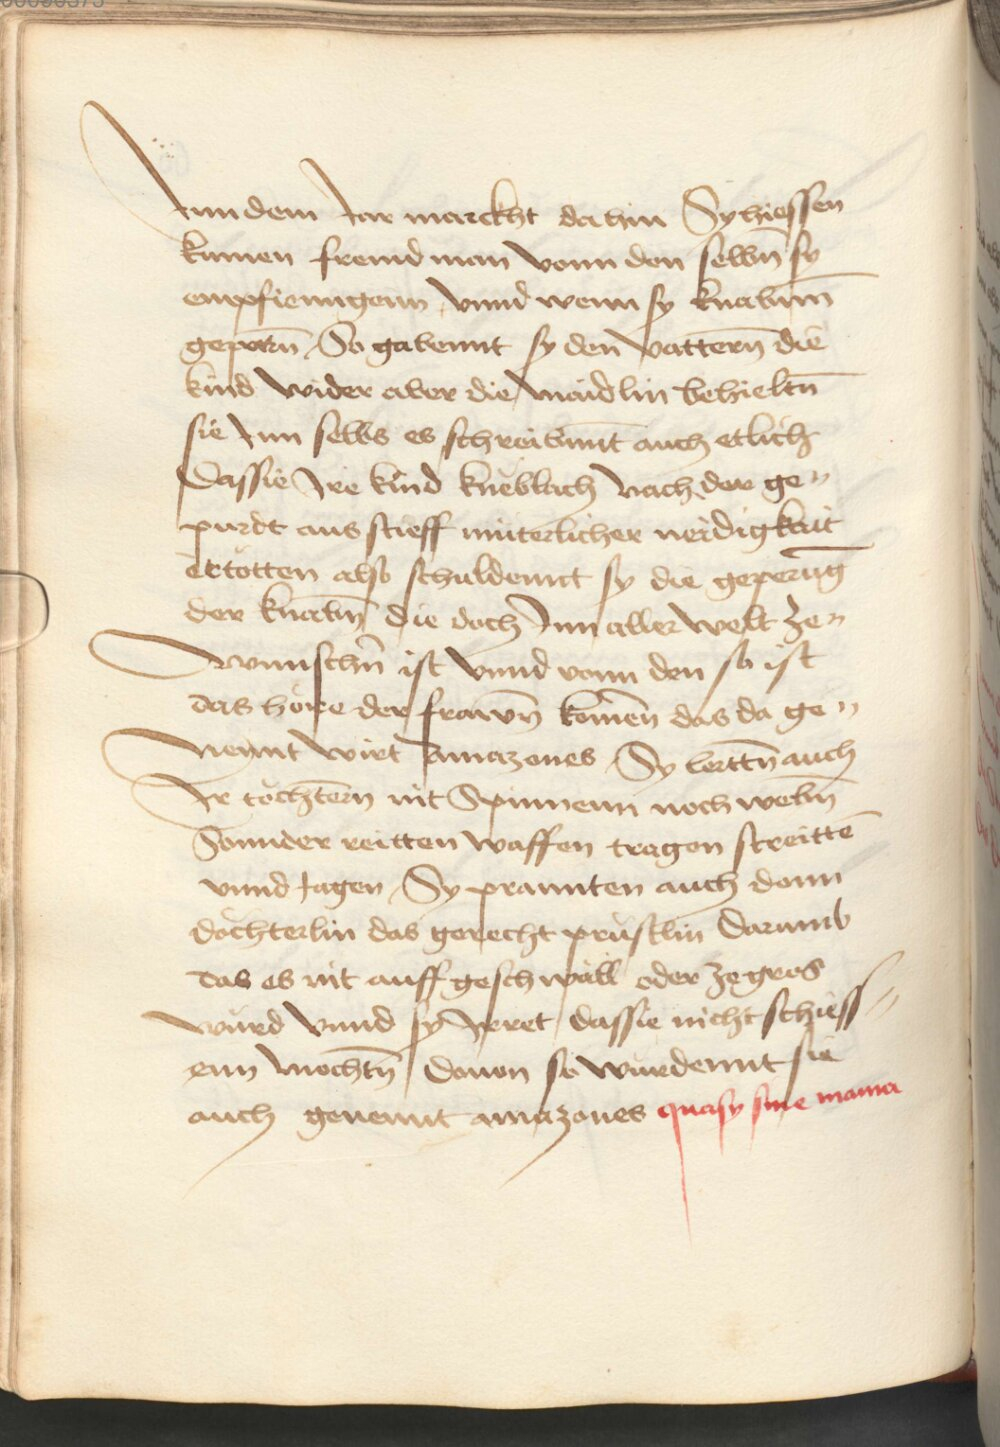 Inn dem Jar marckht dahin Sy hiessen
kumen fremd man vonn den selbn̄ sy
empfienngenn vnnd wenn sy knabnn̄
gepornn̄ So gabennt sy den vattern̄ die
kind wider aber die maidlin behieltn̄
sie Inn selbs es schreibnnt auch etlich
Das sie Ire kind kneblach nach der ge„
purdt aus stieff müterlicher neidigkait
ertötten also schuldennt sy die geperuḡ
der knabn̄ die doch Inn aller welt ze„
wunschn̄ ist vnnd vonn den so ist
das höre der frawn̄ komen̄ das da ge„
nennt wirt Amazones Sy lerttn̄ auch
Ir töchtern̄ nit Spinnenn noch webn̄
Sonnder reitten waffen tragen streittē
vnnd Jagen Sy prannten auch denn
döchterlin das gerecht prüstlin Darumb
das es nit auff geschwäll oder ze gros
würd vnnd sy Irret das sie nicht schiess„
enn mochtn̄ dauon so wurdennt sie
auch genennt amazones quasy sine mama